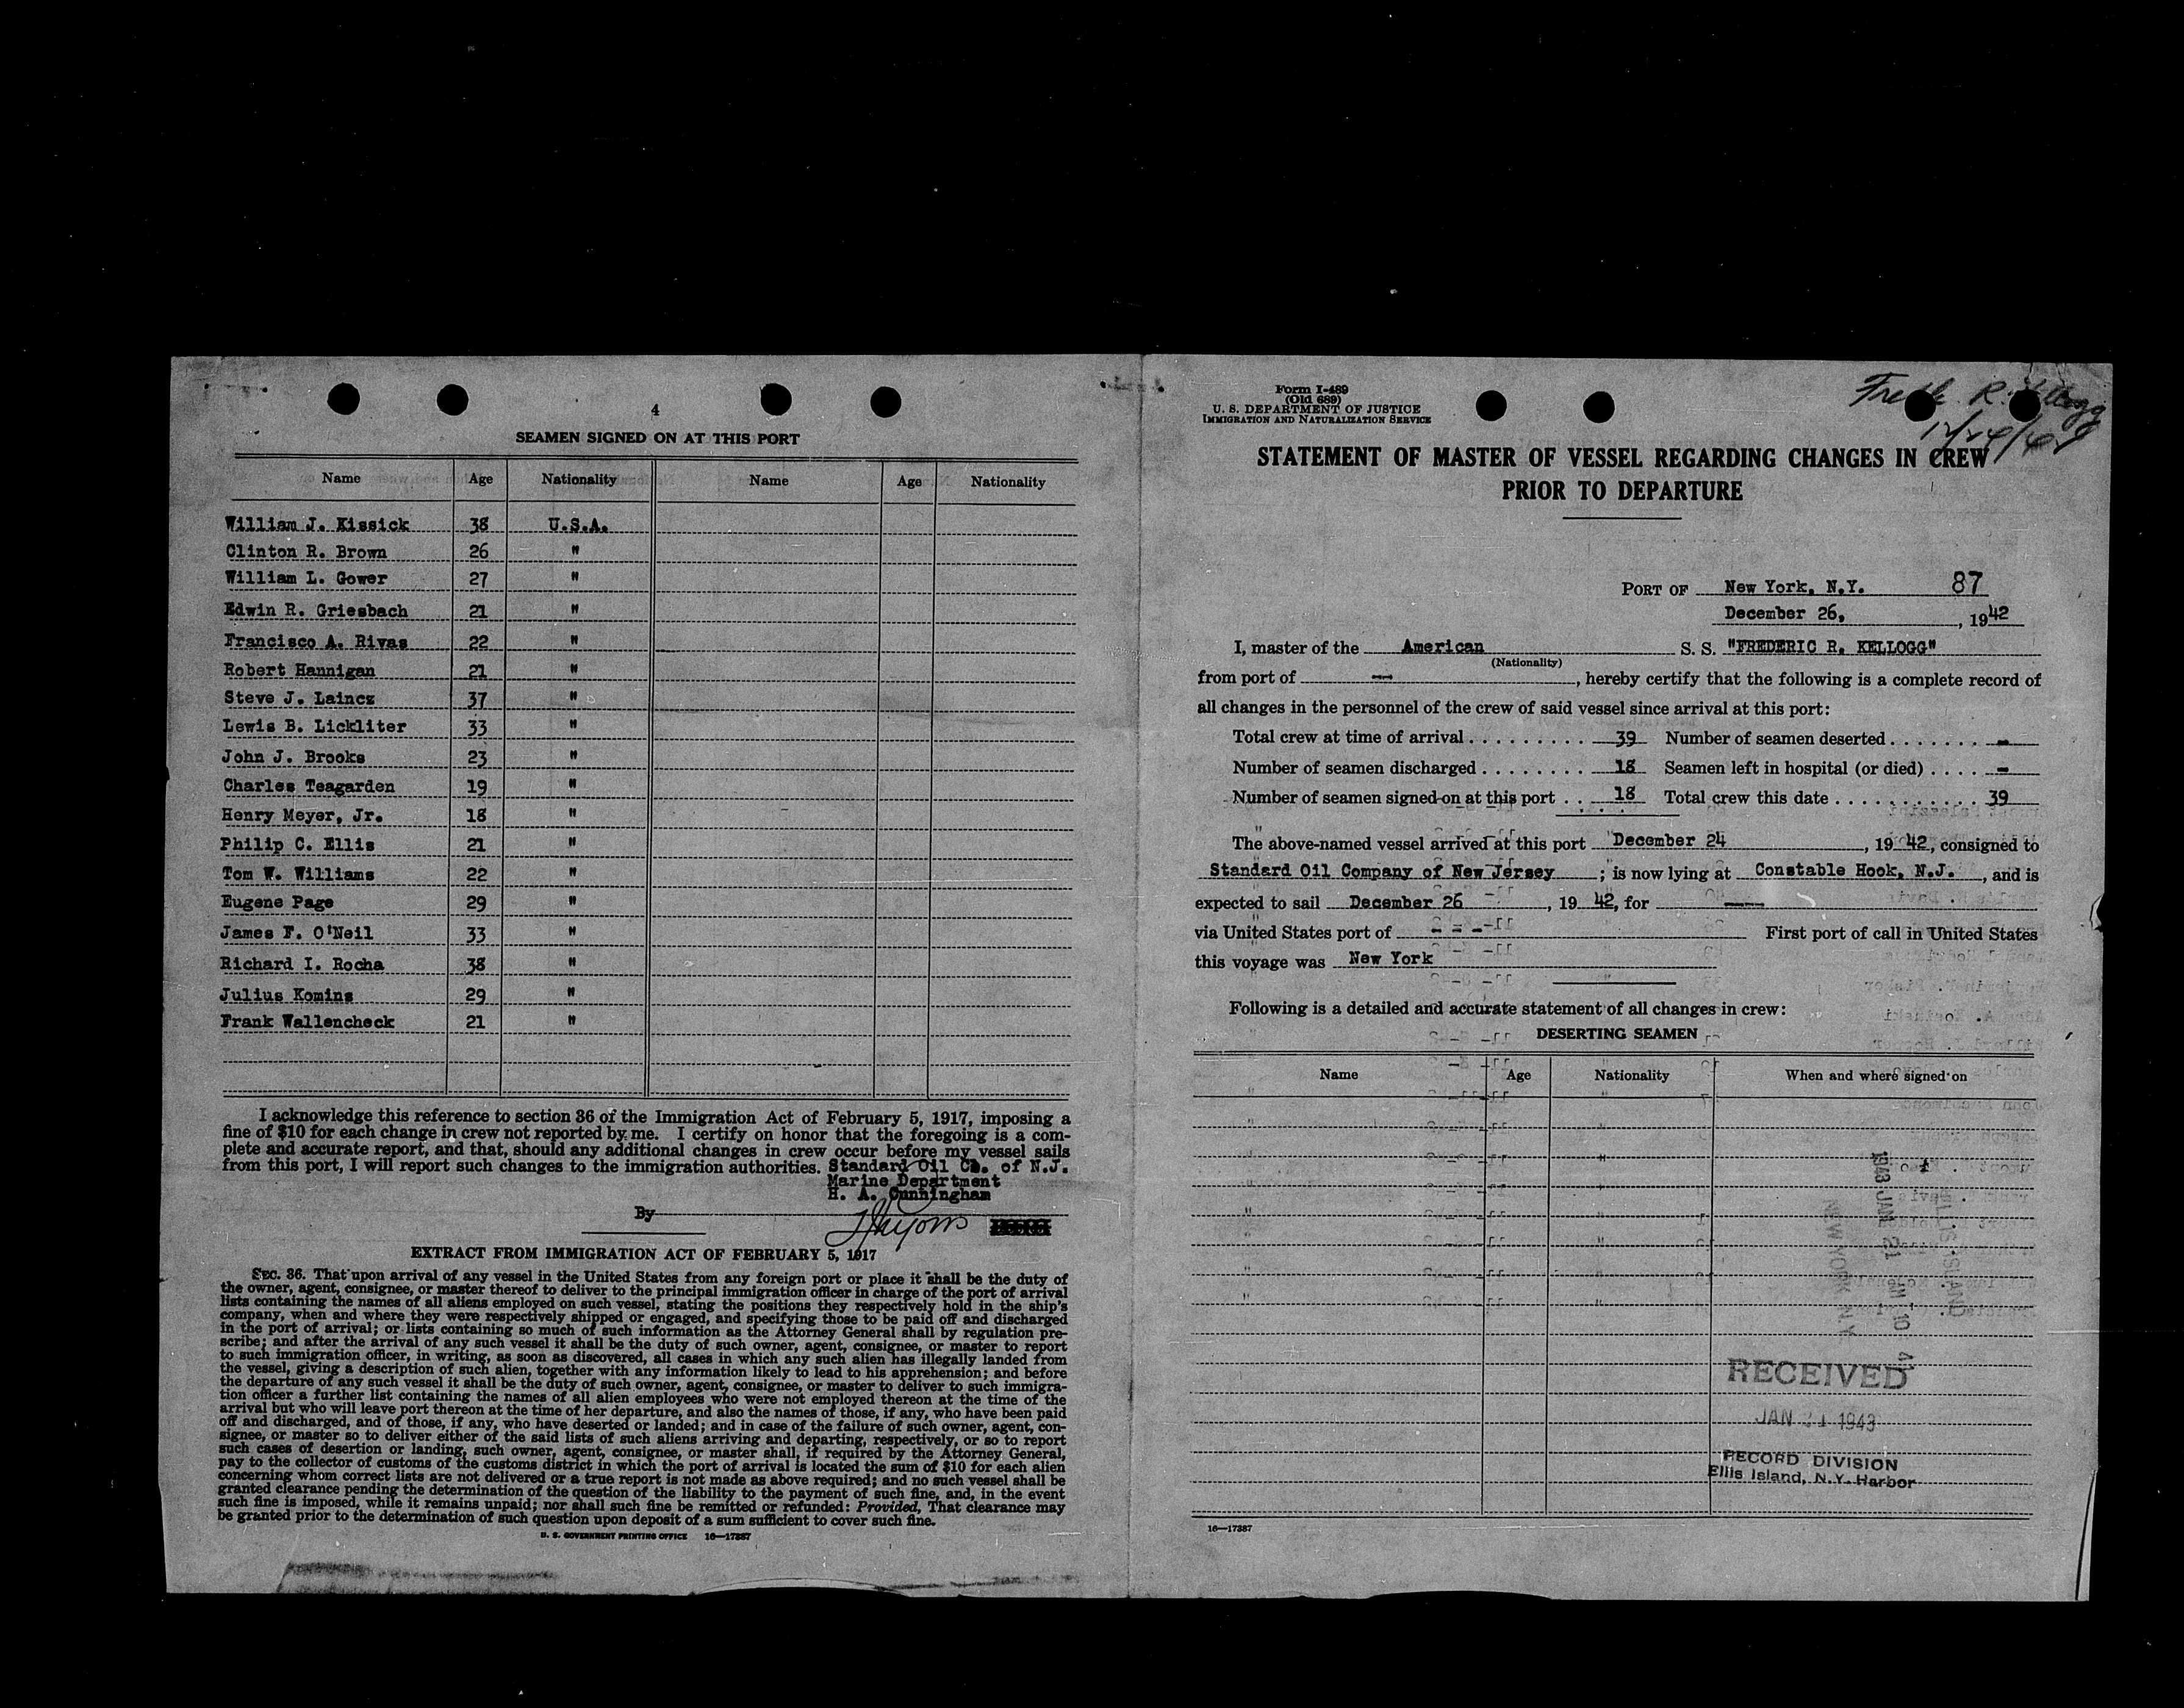 4
SEAMEN SIGNED ON AT THIS PORT
Name Age Nationality Name Age Nationality
William J. Kissick 38 U.S.A.
Clinton R. Brown 26 "
William L. Gower 27 "
Edwin R. Griesbach 21 "
Francisco A. Rivas 22 "
Robert Hannigan 21 "
Steve J. Laincz 37 "
Lewis B. Lickliter 33 "
John J. Brooks 23 "
Charles Teagarden 19 "
Henry Meyer, Jr. 18 "
Philip C. Ellis 21 "
Tom W. Williams 22 "
Eugene Page 29 "
James F. O'Neil 33 "
Richard I. Rocha 38 "
Julius Komins 29 "
Frank Wallencheck 21 "
I acknowledge this reference to section 36 of the Immigration Act of February 5, 1917, imposing a
fine of $10 for each change in crew not reported by me. I certify on honor that the foregoing is a com-
plete and accurate report, and that, should any additional changes in crew occur before my vessel sails
from this port, I will report such changes to the immigration authorities. Standard Oil Co. of N.J.
Marine Department
H. A. Cunningham
By
EXTRACT FROM IMMIGRATION ACT OF FEBRUARY 5, 1917
SEC. 36. That upon arrival of any vessel in the United States from any foreign port or place it shall be the duty of
the owner, agent, consignee, or master thereof to deliver to the principal immigration officer in charge of the port of arrival
lists containing the names of all aliens employed on such vessel, stating the positions they respectively hold in the ship's
company, when and where they were respectively shipped or engaged, and specifying those to be paid off and discharged
in the port of arrival; or lists containing so much of such information as the Attorney General shall by regulation pre-
scribe; and after the arrival of any such vessel it shall be the duty of such owner, agent, consignee, or master to report
to such immigration officer, in writing, as soon as discovered, all cases in which any such alien has illegally landed from
the vessel, giving a description of such alien, together with any information likely to lead to his apprehension; and before
the departure of any such vessel it shall be the duty of such owner, agent, consignee, or master to deliver to such immigra-
tion officer a further list containing the names of all alien employees who were not employed thereon at the time of the
arrival but who will leave port thereon at the time of her departure, and also the names of those, if any, who have been paid
off and discharged, and of those, if any, who have deserted or landed; and in case of the failure of such owner, agent, con-
signee, or master so to deliver either of the said lists of such aliens arriving and departing, respectively, or so to report
such cases of desertion or landing, such owner, agent, consignee, or master shall, if required by the Attorney General,
pay to the collector of customs of the customs district in which the port of arrival is located the sum of $10 for each alien
concerning whom correct lists are not delivered or a true report is not made as above required; and no such vessel shall be
granted clearance pending the determination of the question of the liability to the payment of such fine, and, in the event
such fine is imposed, while it remains unpaid; nor shall such fine be remitted or refunded: Provided, That clearance may
be granted prior to the determination of such question upon deposit of a sum sufficient to cover such fine.
U. S. GOVERNMENT PRINTING OFFICE 16—17387
Form I-489
(Old 689)
U. S. DEPARTMENT OF JUSTICE
IMMIGRATION AND NATURALIZATION SERVICE
12/24/42
STATEMENT OF MASTER OF VESSEL REGARDING CHANGES IN CREW
PRIOR TO DEPARTURE
PORT OF New York, N.Y. 87
December 26, , 1942
I, master of the American S. S. "FREDERIC R. KELLOGG"
(Nationality)
from port of — , hereby certify that the following is a complete record of
all changes in the personnel of the crew of said vessel since arrival at this port:
Total crew at time of arrival . . . . . . . . . 39 Number of seamen deserted . . . . . . . -
Number of seamen discharged . . . . . . . . 18 Seamen left in hospital (or died) . . . . -
Number of seamen signed on at this port . . 18 Total crew this date . . . . . . . . . . . 39
The above-named vessel arrived at this port December 24 , 19 42, consigned to
Standard Oil Company of New Jersey ; is now lying at Constable Hook, N.J. , and is
expected to sail December 26 , 19 42, for —
via United States port of - - - First port of call in United States
this voyage was New York
Following is a detailed and accurate statement of all changes in crew:
DESERTING SEAMEN
Name Age Nationality When and where signed on
1943 JAN 21
ELLIS ISLAND
NEW YORK N.Y.
RECEIVED
JAN 21 1943
RECORD DIVISION
Ellis Island, N.Y. Harbor
16—17387